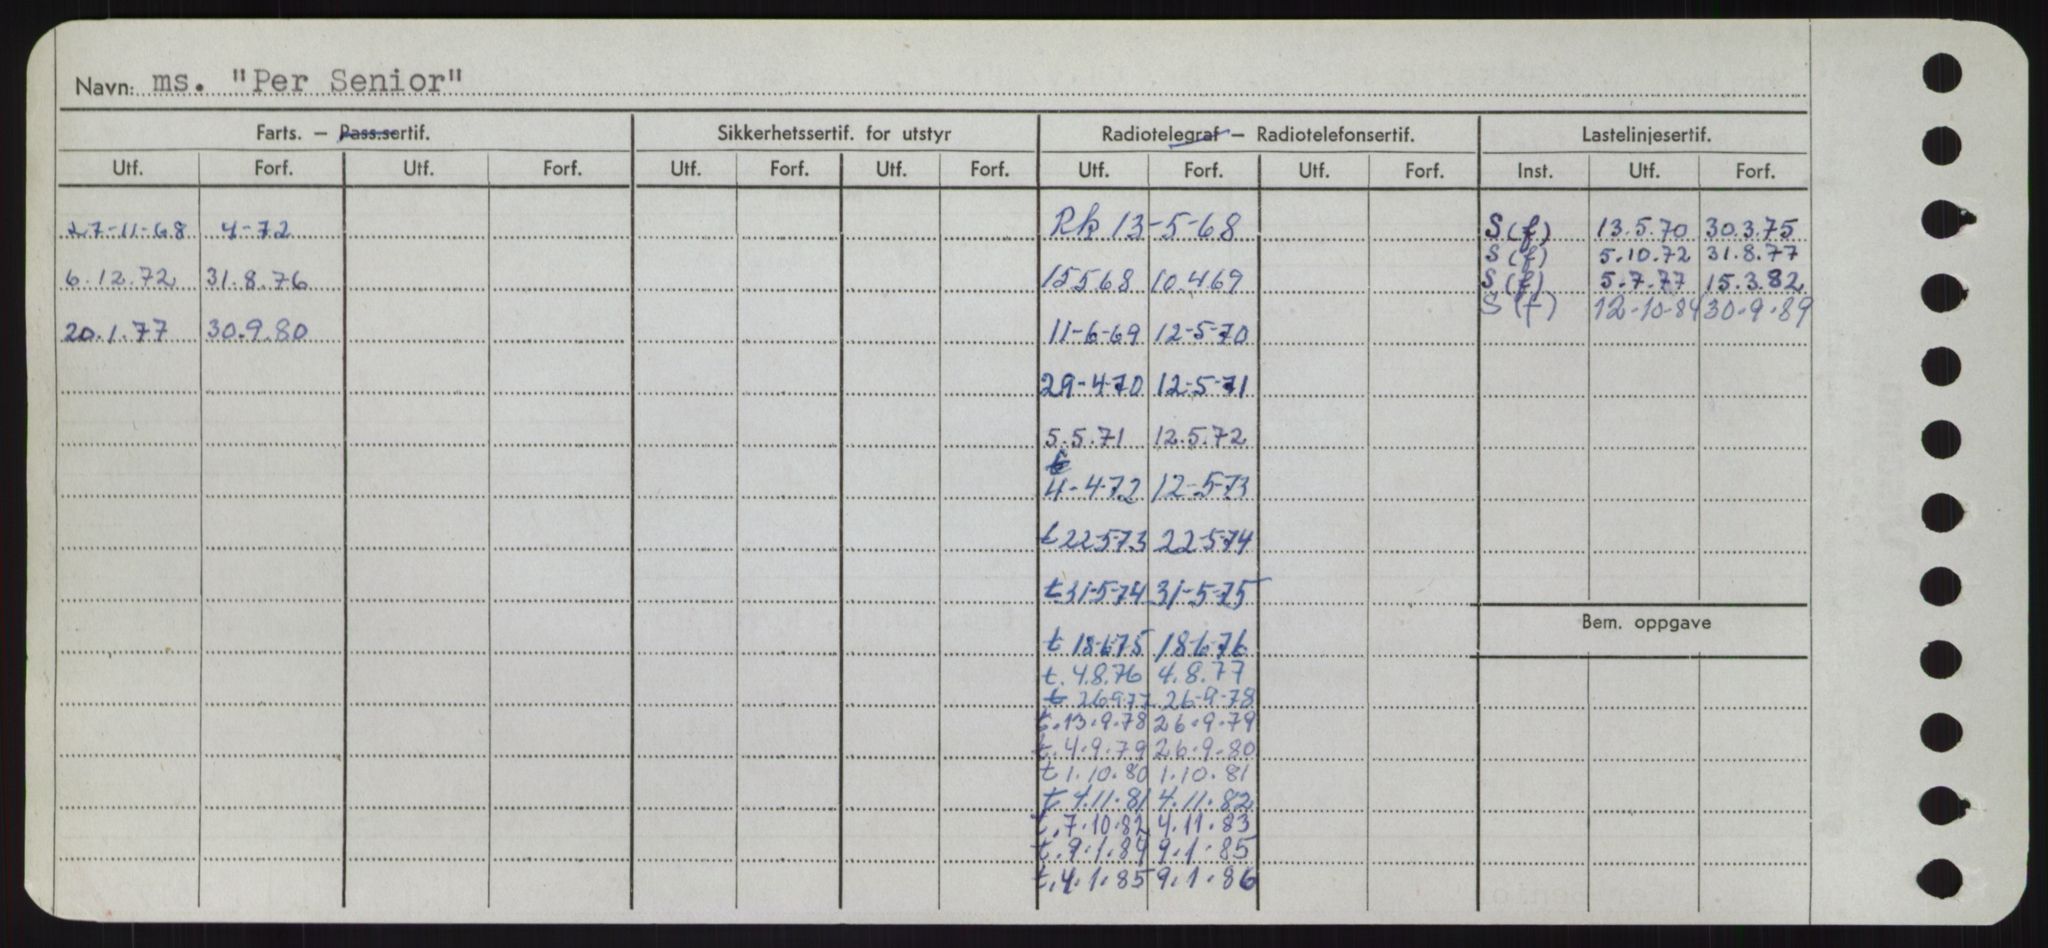 Navn: ms. "Per Senior"
Farts. — Pass.sertif. Sikkerhetssertif. for utstyr Radiotelegraf — Radiotelefonsertif. Lastelinjesertif.
Utf. Forf. Utf. Forf. Utf. Forf. Utf. Forf. Utf. Forf. Utf. Forf. Inst. Utf. Forf.
27-11-68 4-72 Rk 13-5-68 S (f) 13.5.70 30.3.75
S (f) 5.10.72 31.8.77
6.12.72 31.8.76 15568 10.469 S (f) 5.7.77 15.3.82
S (f) 12-10-84 30-9-89
20.1.77 30.9.80 11-6-69 12-5-70
29-4-70 12-5-71
5.5.71 12.5.72
t
4-4-72 12-5-73
t 22-5-73 22-5-74
t 31-5-74 31-5-75
Bem. oppgave
t 18-6-75 18-6-76
t. 4.8.76 4.8.77
t 26977 26-9-78
t. 13.9.78 26.9.79
t. 4.9.79 26.9.80
t 1.10.80 1.10.81
t 4.11.81 4.11.82
t. 7.10.82 4.11.83
t. 9.1.84 9.1.85
t. 4.1.85 9.1.86